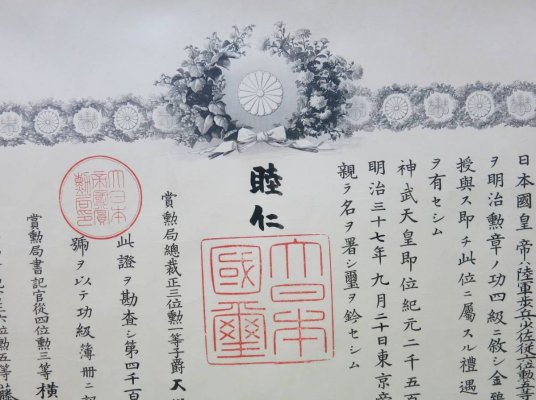 日本國皇帝ハ陸軍步兵少佐從六位勳五等
ヲ明治勲章ノ功四級ニ敘シ金鵄
授與ス即チ此位ニ屬スル禮遇
ヲ有セシム
神武天皇即位紀元二千五百
明治三十七年九月二十日東京帝
親ラ名ヲ署シ璽ヲ鈐セシム
睦仁
大日本
國璽
賞勲局總裁正三位勲一等子爵大
此證ヲ勘査シ第四千百
號ヲ以テ功級簿冊ニ記
大日本
帝國賞
勲局印
賞勲局書記官從四位勲三等横
六位勲五等藤